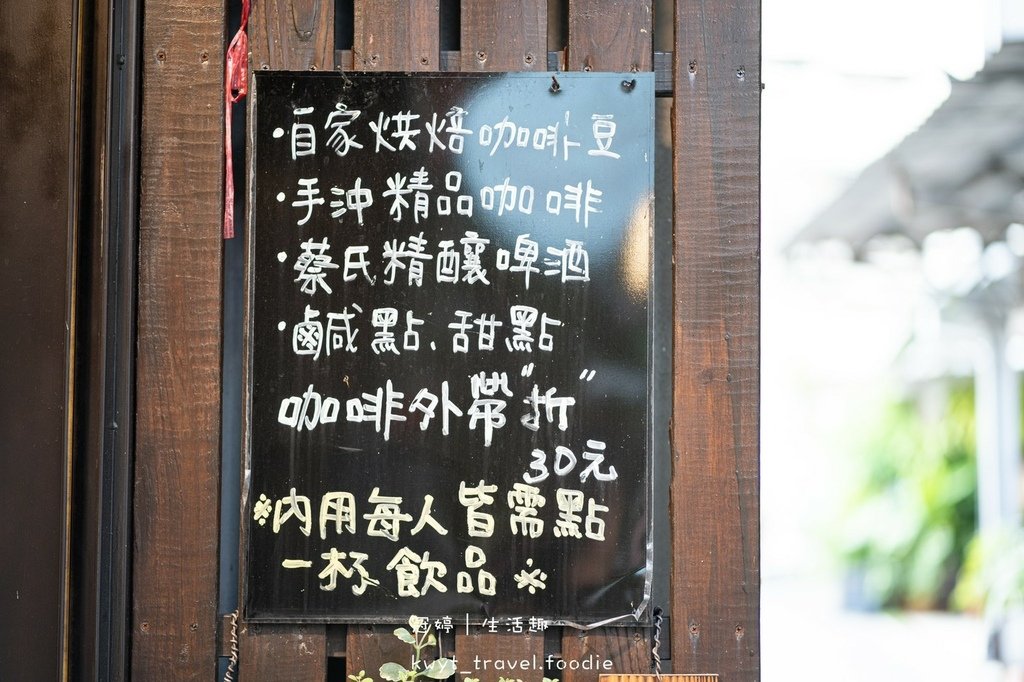 ·自家烘焙咖啡豆
·手沖精品咖啡
·蔡氏精釀啤酒
·鹹點、甜點
咖啡外帶"折"
30元
※內用每人皆需點
一杯飲品※
冠婷｜生活趣
kwyt_travel.foodie